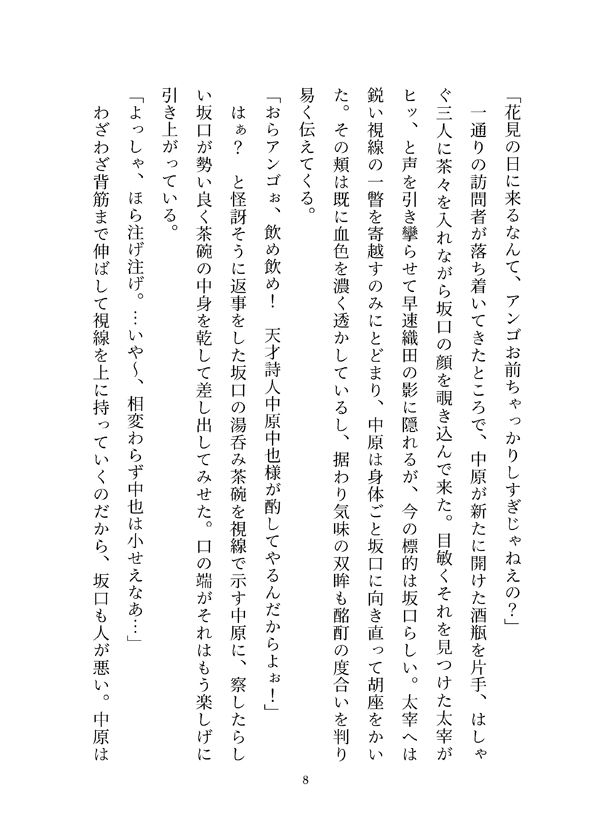 「花見の日に来るなんて、アンゴお前ちゃっかりしすぎじゃねえの？」
　一通りの訪問者が落ち着いてきたところで、中原が新たに開けた酒瓶を片手、はしゃ
ぐ三人に茶々を入れながら坂口の顔を覗き込んで来た。目敏くそれを見つけた太宰が
ヒッ、と声を引き攣らせて早速織田の影に隠れるが、今の標的は坂口らしい。太宰へは
鋭い視線の一瞥を寄越すのみにとどまり、中原は身体ごと坂口に向き直って胡座をかい
た。その頬は既に血色を濃く透かしているし、据わり気味の双眸も酩酊の度合いを判り
易く伝えてくる。
「おらアンゴぉ、飲め飲め！　天才詩人中原中也様が酌してやるんだからよぉ！」
　はぁ？　と怪訝そうに返事をした坂口の湯呑み茶碗を視線で示す中原に、察したらし
い坂口が勢い良く茶碗の中身を乾して差し出してみせた。口の端がそれはもう楽しげに
引き上がっている。
「よっしゃ、ほら注げ注げ。…いや〜、相変わらず中也は小せえなあ…」
　わざわざ背筋まで伸ばして視線を上に持っていくのだから、坂口も人が悪い。中原は
8